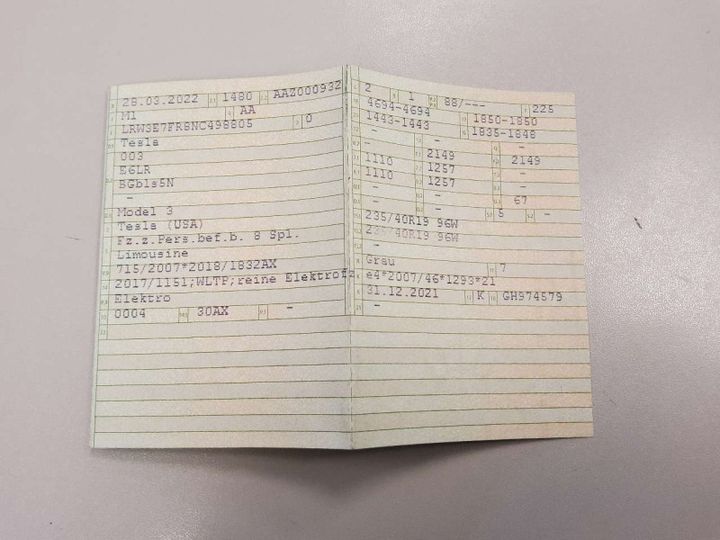 28.03.2022 1480 AAZ000932
M1 AA
LRWSE7FR8NC498805 0
Tesla
003
E6LR
BGbls5N
-
Model 3
Tesla (USA)
Fz.z.Pers.bef.b. 8 Spl.
Limousine
715/2007*2018/1832AX
2017/1151;WLTP;reine Elektrofz.
Elektro
0004 30AX -
2 1 88/--- 225
4694-4694 1850-1850
1443-1443 1835-1848
- - -
- 2149 2149
1110 1257 -
1110 1257 -
- - -
- - 67
- 5 -
235/40R19 96W
235/40R19 96W
-
Grau 7
e4*2007/46*1293*21
31.12.2021 K GH974579
-